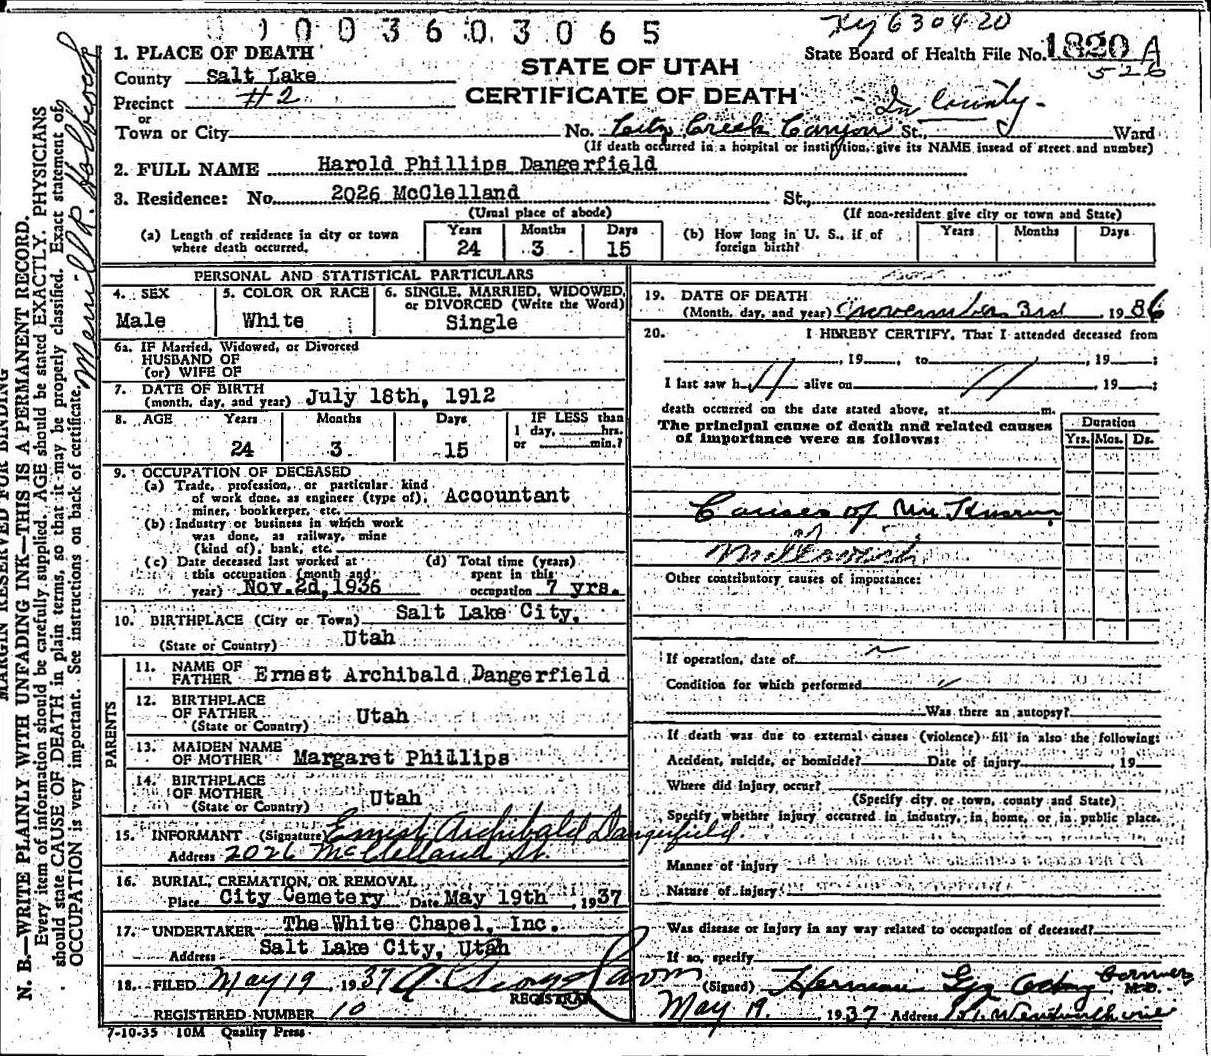 1003603065
630420
1. PLACE OF DEATH
State Board of Health File No. 1820 A
526
County Salt Lake
STATE OF UTAH
Precinct #2
CERTIFICATE OF DEATH
In County
or
Town or City No. City Creek Canyon St., Ward
(If death occurred in a hospital or institution, give its NAME insead of street and number)
2. FULL NAME Harold Phillips Dangerfield
3. Residence: No. 2026 McClelland St.,
(Usual place of abode) (If non-resident give city or town and State)
(a) Length of residence in city or town where death occurred. Years 24 Months 3 Days 15
(b) How long in U. S., if of foreign birth? Years Months Days
PERSONAL AND STATISTICAL PARTICULARS
4. SEX Male
5. COLOR OR RACE White
6. SINGLE, MARRIED, WIDOWED, or DIVORCED (Write the Word) Single
6a. IF Married, Widowed, or Divorced
HUSBAND OF
(or) WIFE OF
7. DATE OF BIRTH
(month, day, and year) July 18th, 1912
8. AGE Years 24 Months 3 Days 15
IF LESS than
1 day, hrs.
or min.?
9. OCCUPATION OF DECEASED
(a) Trade, profession, or particular kind
of work done, as engineer (type of), Accountant
miner, bookkeeper, etc.
(b) Industry or business in which work
was done, as railway, mine
(kind of), bank, etc.
(c) Date deceased last worked at
this occupation (month and
year) Nov.2d,1936
(d) Total time (years)
spent in this
occupation 7 yrs.
10. BIRTHPLACE (City or Town) Salt Lake City,
(State or Country) Utah
PARENTS
11. NAME OF
FATHER Ernest Archibald Dangerfield
12. BIRTHPLACE
OF FATHER Utah
(State or Country)
13. MAIDEN NAME
OF MOTHER Margaret Phillips
14. BIRTHPLACE
OF MOTHER Utah
(State or Country)
15. INFORMANT (Signature) Ernest Archibald Dangerfield
Address 2026 McClelland St.
16. BURIAL, CREMATION, OR REMOVAL
Place City Cemetery Date May 19th, 1937
17. UNDERTAKER The White Chapel, Inc.
Address Salt Lake City, Utah
18. FILED May 19, 1937
REGISTRAR
REGISTERED NUMBER 10
7-10-35 10M Quality Press
19. DATE OF DEATH
(Month, day, and year) November 3rd, 1936
20. I HEREBY CERTIFY, That I attended deceased from
, 19 , to , 19 ;
I last saw h alive on , 19 ;
death occurred on the date stated above, at m.
The principal cause of death and related causes
of importance were as follows:
Duration
Yrs. Mos. Ds.
Causes of
Other contributory causes of importance:
If operation, date of
Condition for which performed
Was there an autopsy?
If death was due to external causes (violence) fill in also the following:
Accident, suicide, or homicide? Date of injury , 19
Where did injury occur?
(Specify city or town, county and State)
Specify whether injury occurred in industry, in home, or in public place.
Manner of injury
Nature of injury
Was disease or injury in any way related to occupation of deceased?
If so, specify
(Signed) Herman M.D.
May 19, 1937 Address
MARGIN RESERVED FOR BINDING
N. B.—WRITE PLAINLY WITH UNFADING INK—THIS IS A PERMANENT RECORD.
Every item of information should be carefully supplied. AGE should be stated EXACTLY. PHYSICIANS
should state CAUSE OF DEATH in plain terms, so that it may be properly classified. Exact statement of
OCCUPATION is very important. See instructions on back of certificate.
Merrill P. Holbrook